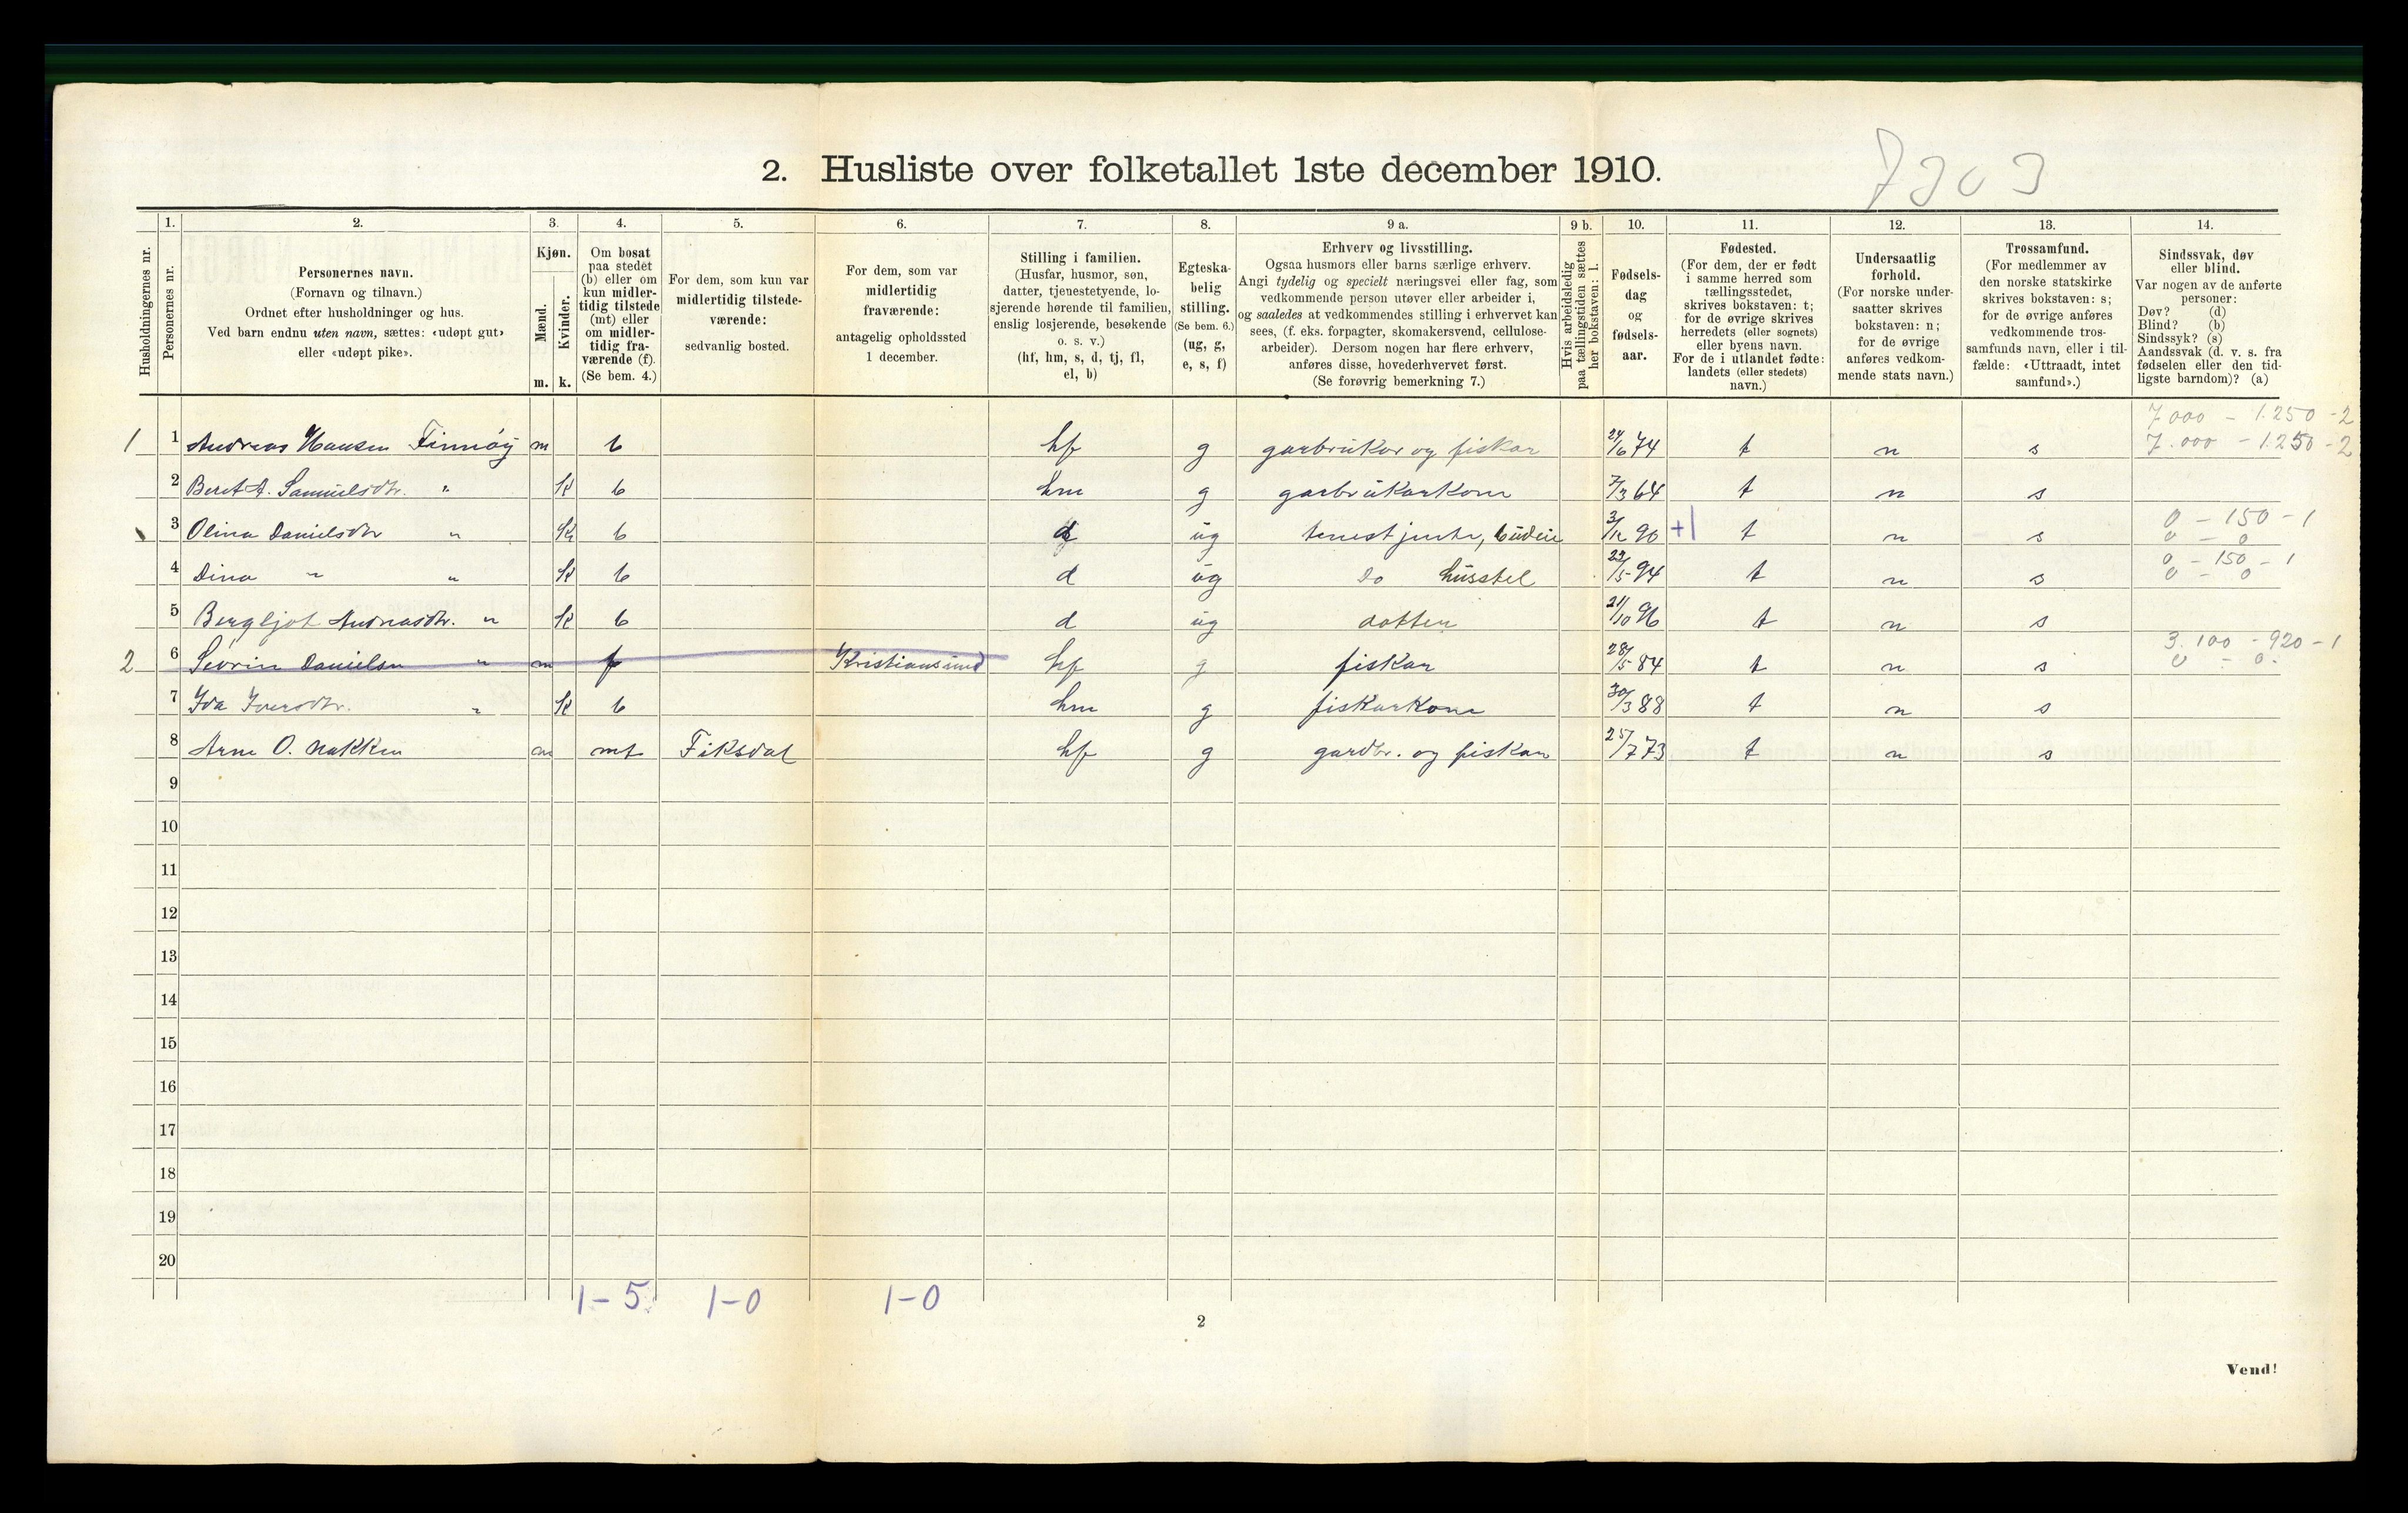 2. Husliste over folketallet 1ste december 1910.
7303
Husholdningernes nr.
1.
Personernes nr.
2.
Personernes navn.
(Fornavn og tilnavn.)
Ordnet efter husholdninger og hus.
Ved barn endnu uten navn, sættes: «udøpt gut»
eller «udøpt pike».
3.
Kjøn.
Mænd.
Kvinder.
m. k.
4.
Om bosat
paa stedet
(b) eller om
kun midler-
tidig tilstede
(mt) eller
om midler-
tidig fra-
værende (f).
(Se bem. 4.)
5.
For dem, som kun var
midlertidig tilstede-
værende:
sedvanlig bosted.
6.
For dem, som var
midlertidig
fraværende:
antagelig opholdssted
1 december.
7.
Stilling i familien.
(Husfar, husmor, søn,
datter, tjenestetyende, lo-
sjerende hørende til familien,
enslig losjerende, besøkende
o. s. v.)
(hf, hm, s, d, tj, fl,
el, b)
8.
Egteska-
belig
stilling.
(Se bem. 6.)
(ug, g,
e, s, f)
9 a.
Erhverv og livsstilling.
Ogsaa husmors eller barns særlige erhverv.
Angi tydelig og specielt næringsvei eller fag, som
vedkommende person utøver eller arbeider i,
og saaledes at vedkommendes stilling i erhvervet kan
sees, (f. eks. forpagter, skomakersvend, cellulose-
arbeider). Dersom nogen har flere erhverv,
anføres disse, hovederhvervet først.
(Se forøvrig bemerkning 7.)
9 b.
Hvis arbeidsledig
paa tællingstiden sættes
her bokstaven: l.
10.
Fødsels-
dag
og
fødsels-
aar.
11.
Fødested.
(For dem, der er født
i samme herred som
tællingsstedet,
skrives bokstaven: t;
for de øvrige skrives
herredets (eller sognets)
eller byens navn.
For de i utlandet fødte:
landets (eller stedets)
navn.)
12.
Undersaatlig
forhold.
(For norske under-
saatter skrives
bokstaven: n;
for de øvrige
anføres vedkom-
mende stats navn.)
13.
Trossamfund.
(For medlemmer av
den norske statskirke
skrives bokstaven: s;
for de øvrige anføres
vedkommende tros-
samfunds navn, eller i til-
fælde: «Uttraadt, intet
samfund».)
14.
Sindssvak, døv
eller blind.
Var nogen av de anførte
personer:
Døv? (d)
Blind? (b)
Sindssyk? (s)
Aandssvak (d. v. s. fra
fødselen eller den tid-
ligste barndom)? (a)
7000 - 1.250 - 2
1 1 Andreas Hansen Finnøy m b hf g garbrukar og fiskar 24/6 74 t n s 7.000 - 1250 - 2
2 Beret A. Samuelsdtr. " k b hm g garbrukarkone 7/3 64 t n s
0 - 150 - 1
3 Olina Danielsdtr " k b d ug tenestjente, budeie 3/12 90 +1 t n s 0 - 0
0 - 150 - 1
4 Dina " " k b d ug do husstel 22/5 94 t n s 0 - 0
5 Bergljot Andreasdtr. " k b d ug dotter 21/10 96 t n s
3.100 - 920 - 1
2 6 Sevrin Danielsen " m f Kristiansund hf g fiskar 28/5 84 t n s 0 - 0.
7 Ida Iversdtr. " k b hm g fiskarkone 30/3 88 t n s
8 Arne O. Nakken m mt Fiksdal hf g gardbr. og fiskar 25/7 73 t n s
9
10
11
12
13
14
15
16
17
18
19
20
1-5 1-0 1-0
2
Vend!